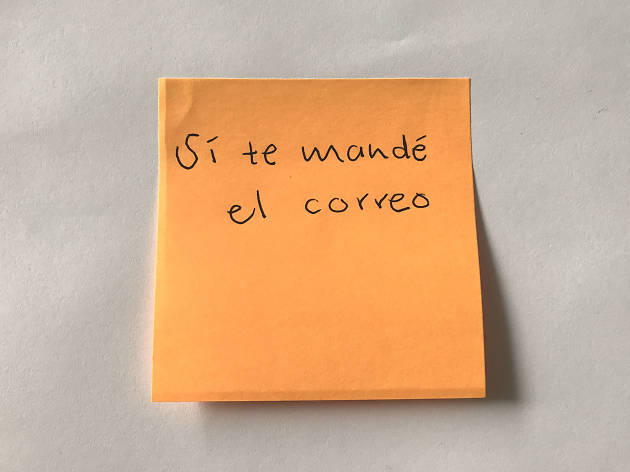 Sí te mandé
el correo